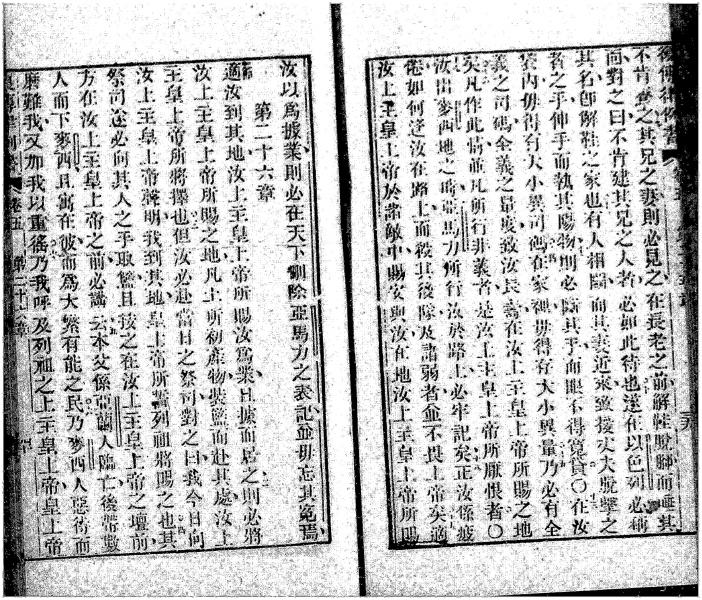 復傳律例書
不肯娶之其兄之妻則必見之在長老之前解鞋脫腳而唾其
面對之曰不肯建其兄之人者必如此待也遂在以色列必稱
其名卽解鞋之家也有人相鬪而其妻近來致援丈夫脫擊之
者之手伸手而執其陽物則必斷其手而眼不得寬貸○在汝
囊內毋得有大小異司碼在家裡毋得存大小異量乃必有全
義之司碼全義之量度致汝長壽在汝上主皇上帝所賜之地
矣凡作此情節凡所行非義者是汝上主皇上帝所厭恨者○
汝出麥西地之時亞馬力所行汝於路上必牢記矣正汝係疲
倦如何逢汝在路上而殺其後隊及諸弱者並不畏上帝矣適
汝上主皇上帝於諸敵中賜安與汝在地汝上主皇上帝所賜
汝以爲據業則必在天下剿除亞馬力之表記並毋忘其冤焉
第二十六章
適汝到其地汝上主皇上帝所賜汝爲業且據而居之則必將
汝上主皇上帝所賜之地凡土所初產物裝籃而赴其處汝上
主皇上帝所將擇也但汝必赴當日之祭司對之曰我今日向
汝上主皇上帝聲明我到其地皇上帝所誓列祖將賜之也其
祭司遂必向其人之手取籃且按之在汝上主皇上帝之壇前
方在汝上主皇上帝之前必講云本父係亞蘭人臨亡後帶數
人而下麥西且寓在彼而爲大繁有能之民乃麥西人惡待而
磨難我又加我以重徭乃我呼及列祖之上主皇上帝皇上帝
卷五 第二十六章